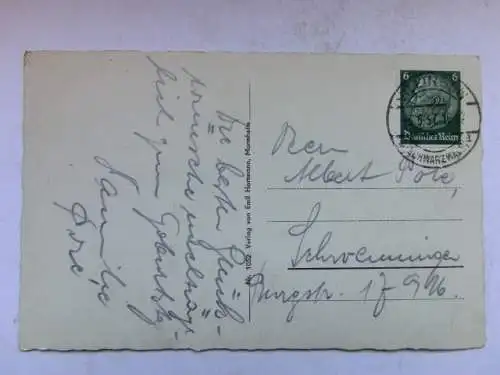 Die besten Glück-
wünsche nachträg-
lich zum Geburtstag
Familie
Nr. 1002 Verlag von Emil Hartmann, Mannheim
6 6
Deutsches Reich
SCHWARZWALD
Herrn
Albert
Schwenningen
Burgstr. 17